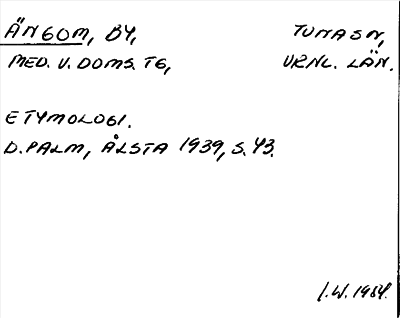 ÄNGOM, BY, TUNA SN,
MED. V. DOMS. TG, VRNL. LÄN.
ETYMOLOGI.
D. PALM, ÅLSTA 1939, S. 43.
I.W. 1984.